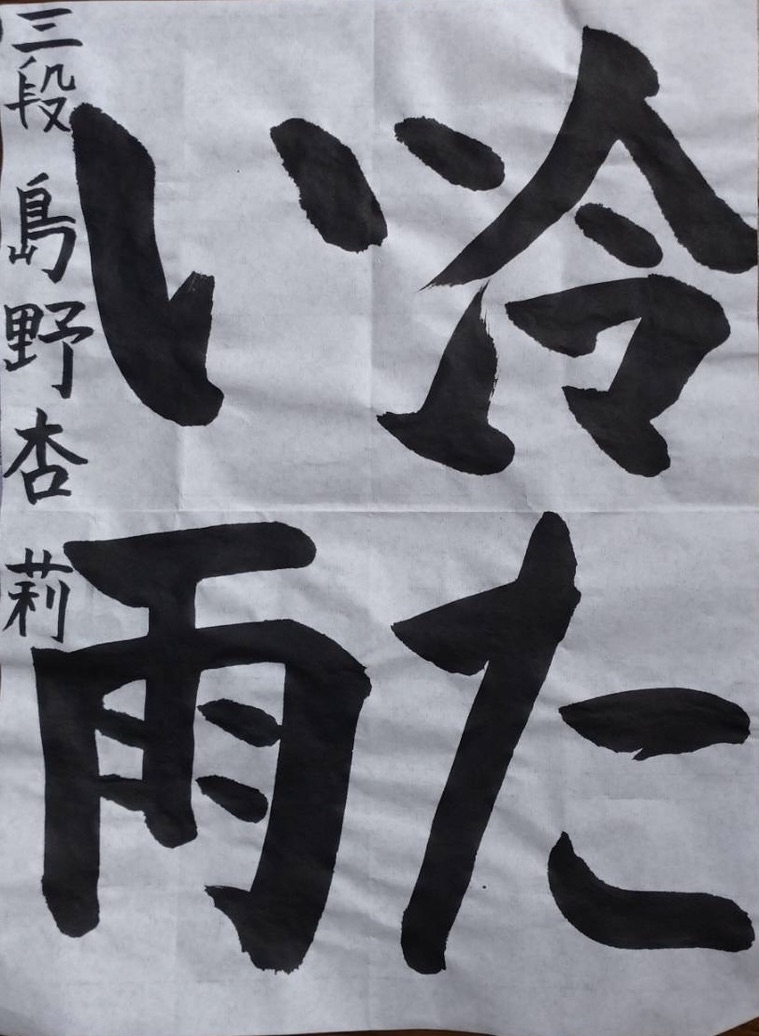 冷た
い雨
三段 島野杏莉